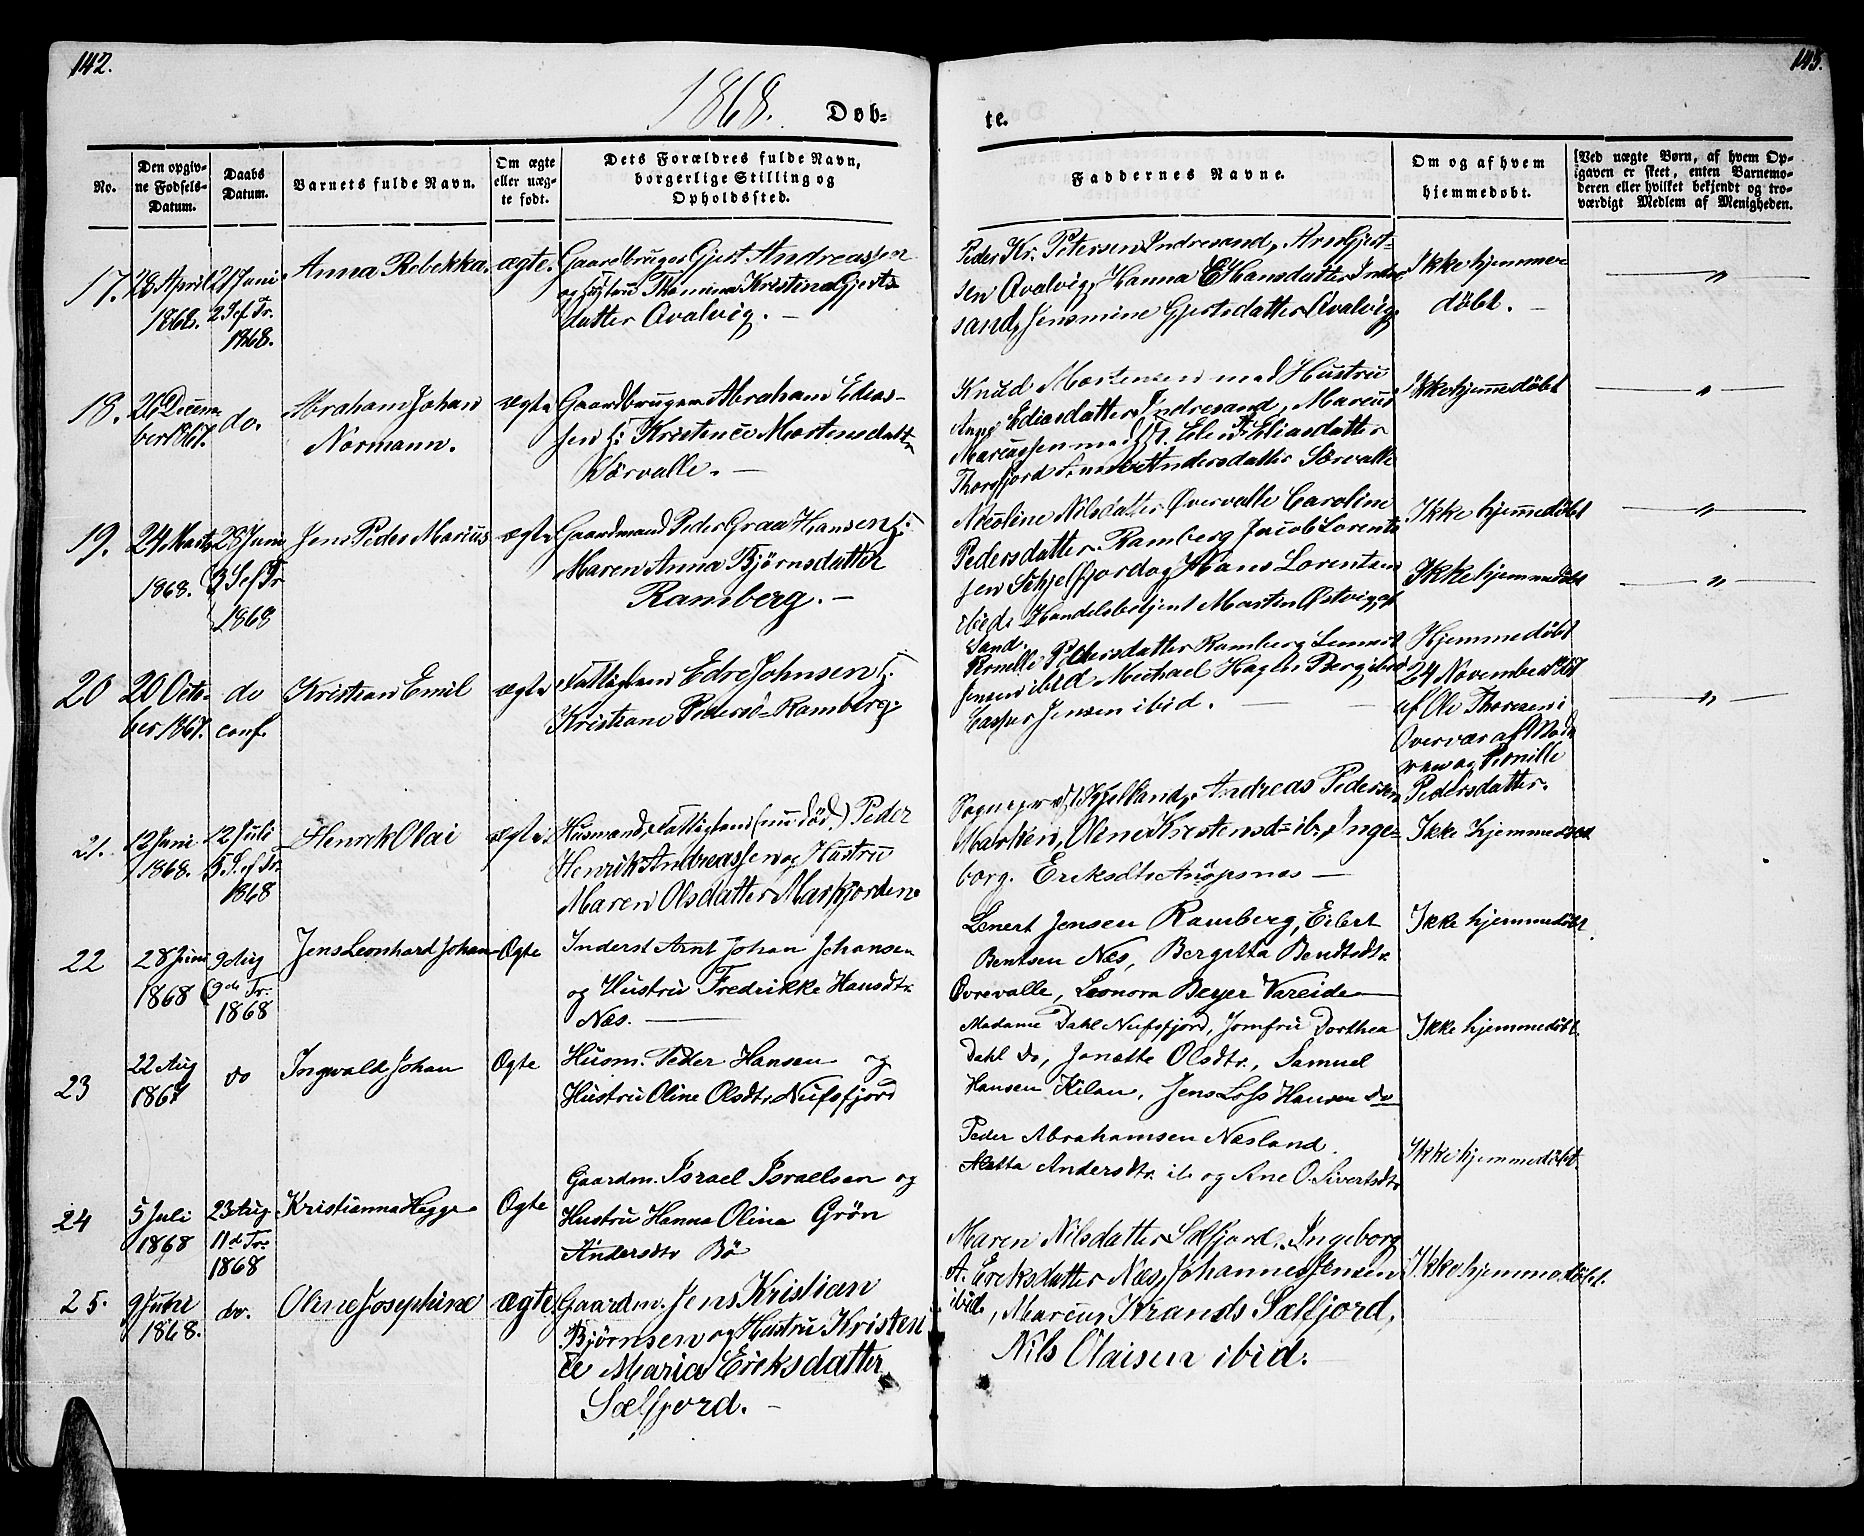 142.
1868.
Døb=
No.
Den opgiv-
ne Fødsels-
Datum.
Daabs
Datum.
Barnets fulde Navn.
Om ægte
eller uæg-
te født.
Dets Forældres fulde Navn,
borgerlige Stilling og
Opholdssted.
17.
28 April
1868.
21 Juni
2 S. ef. Tr.
1868.
Anna Rebekka.
ægte.
Gaardbruger Gjert Andreassen
og Hustru Thomine Kristine Gjerts
datter Qvalvig. –
18.
26 Decem
ber 1867.
do.
Abraham Johan
Normann.
ægte
Gaardbruger Abraham Edias-
sen h: Kristence Mortensdatt
Sørvalle. –
19.
24 Marts
1868.
28 Juni
3 S. ef Tr
1868
Jens Peder Marius
ægte
Gaardmand Peder Graa Hansen h:
Maren Anna Bjørnsdatter
Ramberg. –
20
20 Octo-
ber 1867.
do
conf.
Kristian Emil
ægte
Fattiglem Edre Johnsen h:
Kristiane Peders= Ramberg.
21.
12 Juni
1868.
12 Juli
5 S. ef Tr.
1868
Henrik Olai
ægte.
Husmand, Fattiglem (nu død) Peder
Henrik Andreassen og Hustru
Maren Olsdatter Markjorden.
22
28 Juni
1868
9 Aug
9de Tr.
1868
Jens Leonhard Johan
Ægte
Inderst Arnt Johan Johansen
og Hustru Fredrikke Hansdtr
Næs.
23
22 Aug
1867
do
Ingvald Johan
Ægte
Husm. Peder Hansen og
Hustru Oline Olsdtr. Nufsfjord
24
5 Juli
1868
23 Aug
11d Tr.
1868
Kristianna Hegge
Ægte
Gaardm. Israel Israelsen og
Hustru Hanna Olina Grøn
Andersdtr Bø
25.
9 Juni
1868.
do.
Oline Josephine
ægte
Gaardm. Jens Kristian
Bjørnsen og Hustru Kristen
ce Maria Eriksdatter
Sælfjord. –
143.
te.
Faddernes Navne.
Om og af hvem
hjemmedøbt.
Ved uægte Børn, af hvem Op-
gaven er skeet, enten Barnemo-
deren eller hvilket bekjendt og tro-
værdigt Medlem af Menigheden.
Peder Kr. Petersen Indresand, Arn Gjert-
sen Qvalvig, Hanna E Hansdatter Indre
sand, Jensmine Gjertsdatter Qvalvig,
Ikke hjemme
døbt. –
"
Knud Mortensen med Hustru
Anne Ediasdatter Indresand, Marcus
Marcussen med H. Elen A. Eliasdatter
Thorsfjord Andersdatter Sørvalle
Ikke hjemmedøbt
"
Nicoline Nilsdatter Øvervalle Caroline
Pedersdatter Ramberg Jacob Lorents
sen Schjelfjord og Hans Lorentsen
ibid. Handelsbetjent Morten Østvig
Sand.
Ikke hjemmedøbt
"
Ikke hjemmedøbt
"
Pernelle Pedersdatter Ramberg Lennert
Jensen ibid Michael Hagbr. Berg ibid
Casper Jensen ibid. –
Hjemmedøbt
24 November 1867
af Ole Thoresen i
Overvær af Mod
eren og Pernille
Pedersdatter.
"
Sogneprest Kjelland, Andreas Pedersen
Marken, Oline Kristensd= ib, Inge-
borg. Eriksdtr. –
Ikke hjemmedøbt
Lenert Jensen Ramberg, Eilert
Bentsen Næs, Bergitta Bendtsdtr
Øvrevalle, Leonora Beyer Vareide
Ikke hjemmedøbt
Madame Dahl Nufsfjord, Jomfru Dorthea
Dahl do, Jonette Olsdtr., Samuel
Hansen Kilan, Jens Loss Hansen do
Ikke hjemmedøbt
Peder Abrahamsen Næsland.
Aletta Andersdtr. ib og Ane O. Sivertsdtr
Ikke hjemmedøbt
Maren Nilsdatter Sælfjord, Ingeborg
A. Eriksdatter Næs, Johannes Jensen
ibid, Marcus Krands Sælfjord,
Nils Olaisen ibid.
Ikke hjemmedøbt.